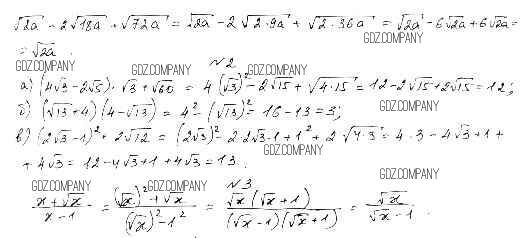 √2a - 2√18a + √72a = √2a - 2√2·9a + √2·36a = √2a - 6√2a + 6√2a =
= √2a.
GDZ.COMPANY
GDZ.COMPANY
№2
GDZ.COMPANY
а) (4√3 - 2√5)·√3 + √60 = 4(√3)² - 2√15 + √4·15 = 12 - 2√15 + 2√15 = 12;
б) (√13 + 4)(4 - √13) = 4² - (√13)² = 16 - 13 = 3;
GDZ.COMPANY
в) (2√3 - 1)² + 2√12 = (2√3)² - 2·2√3·1 + 1² + 2√4·3 = 4·3 - 4√3 + 1 +
+ 4√3 = 12 - 4√3 + 1 + 4√3 = 13.
GDZ.COMPANY
GDZ.COMPANY
№3
GDZ.COMPANY
(x + √x)/(x - 1) = ((√x)² + √x)/((√x)² - 1²) = (√x(√x + 1))/((√x - 1)(√x + 1)) = √x/(√x - 1).